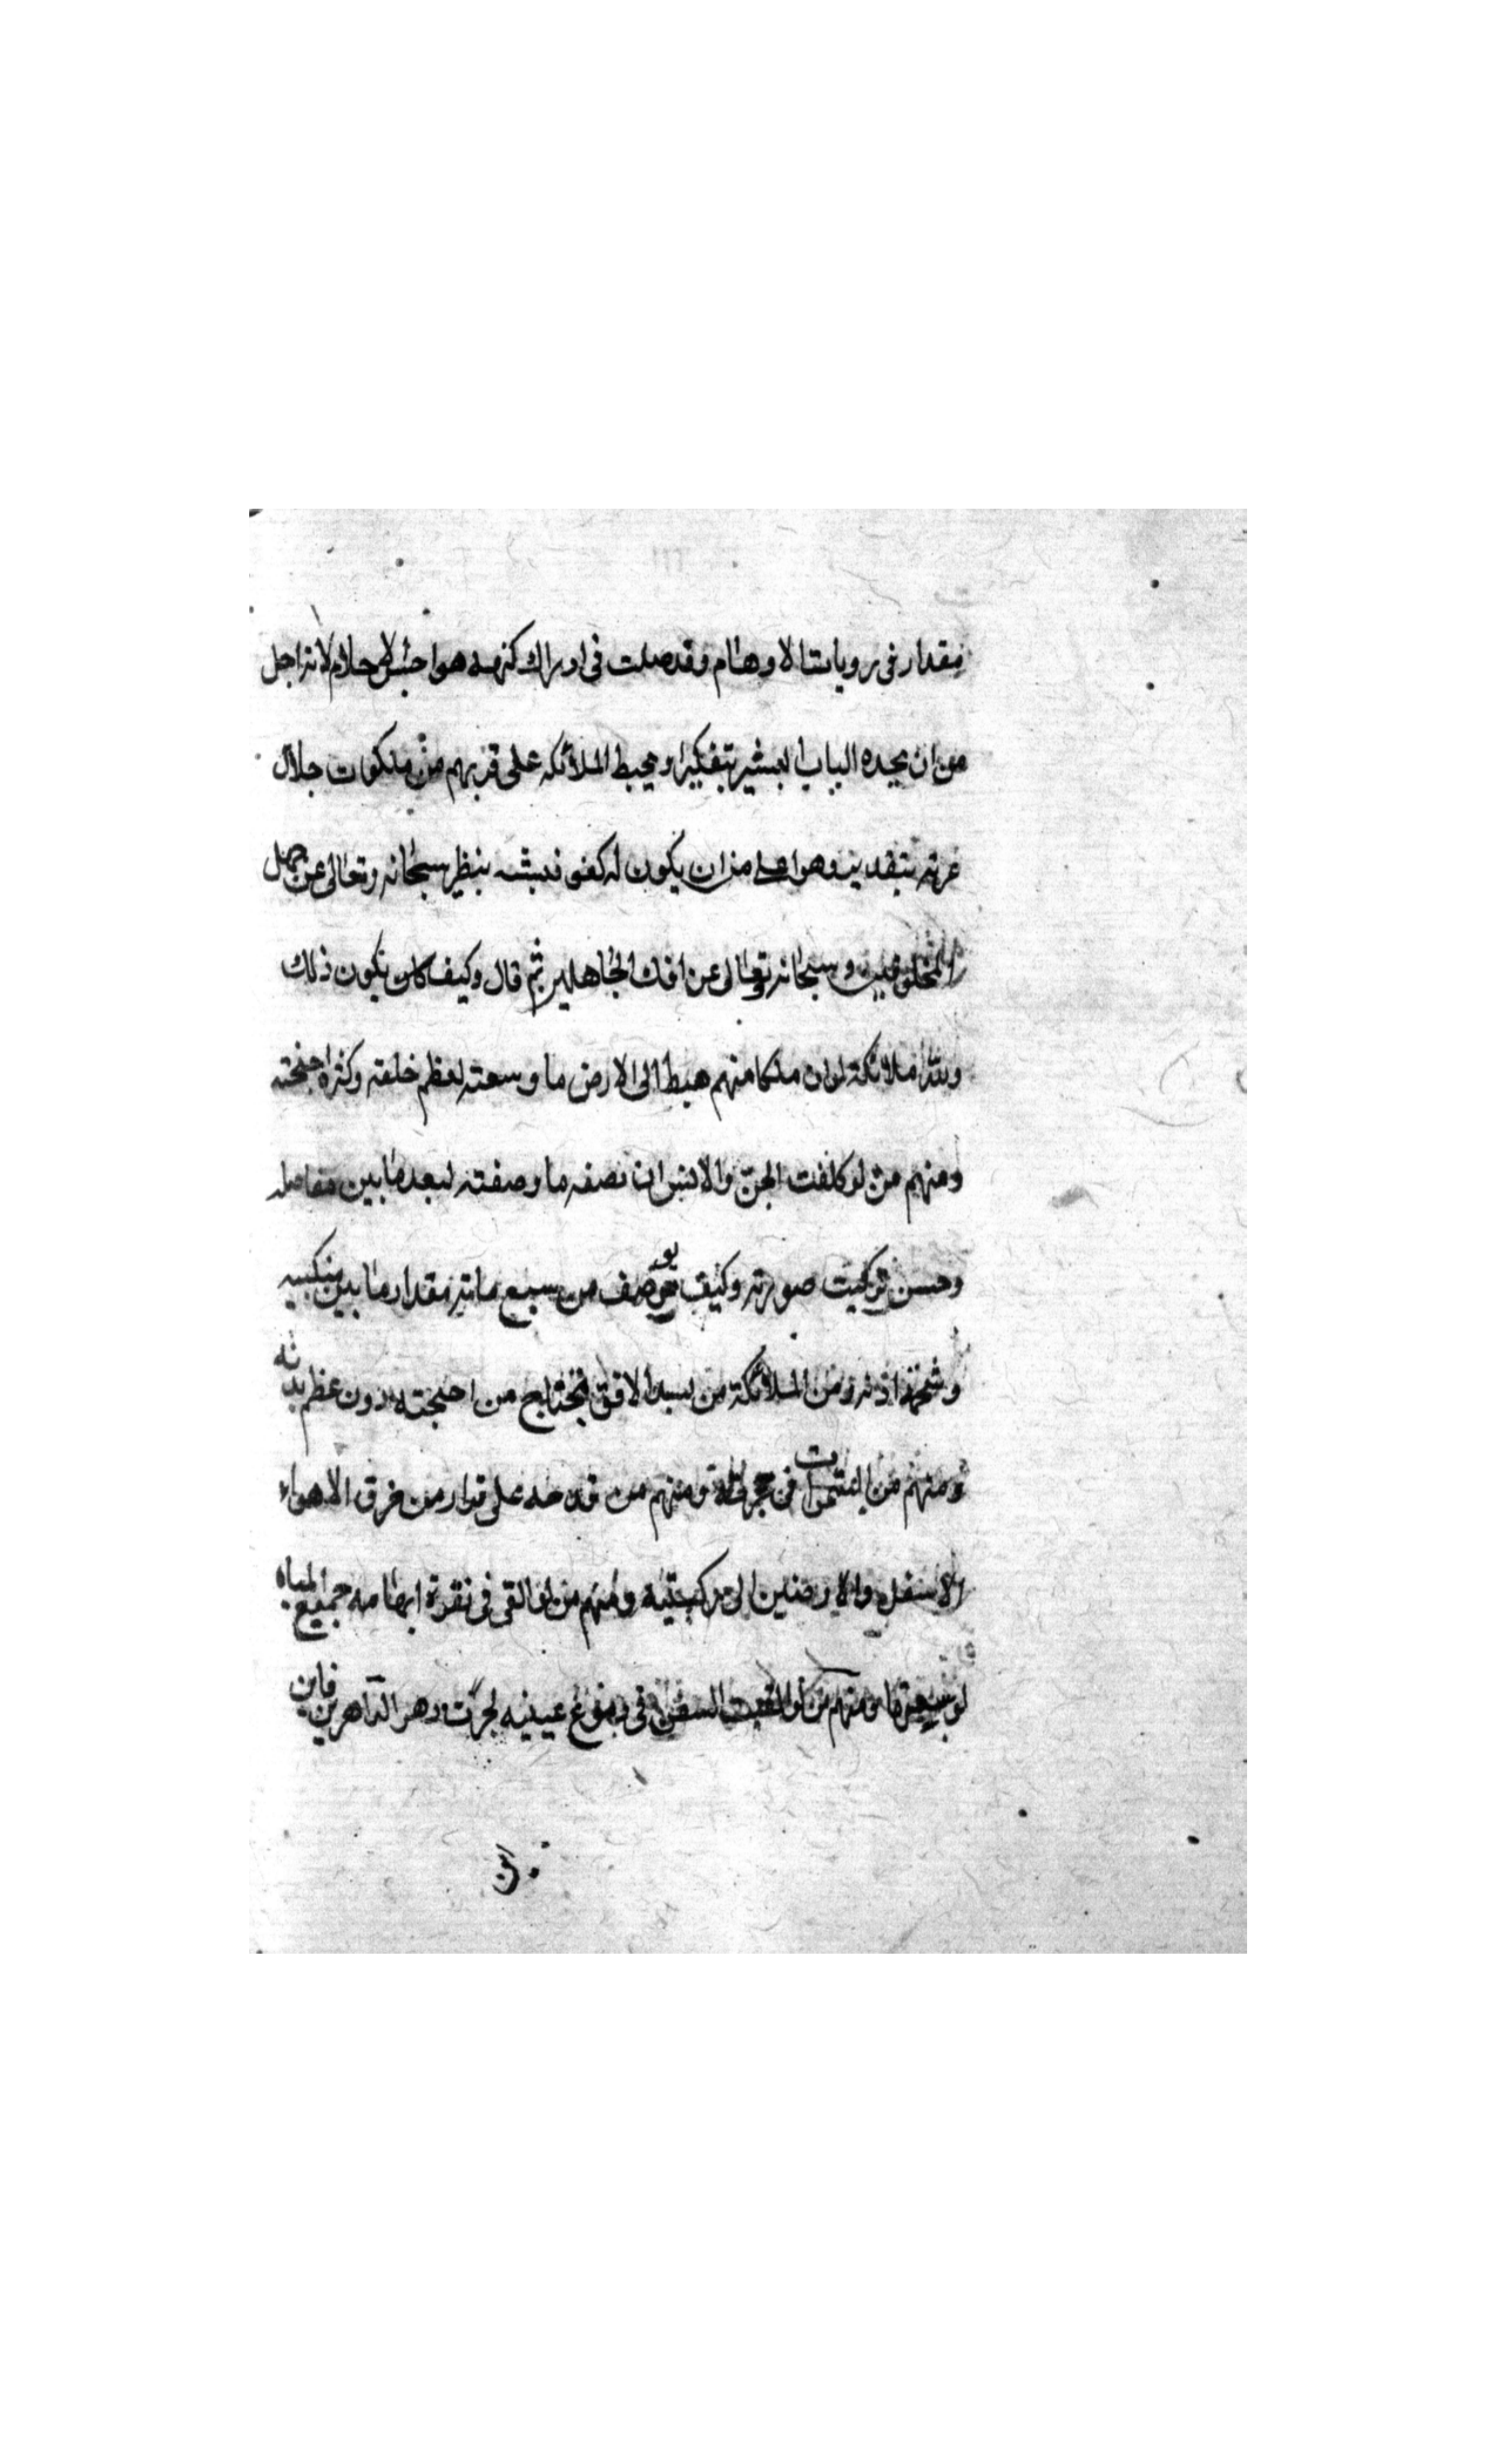 مقدار فى رويات الاوهام وقد ضلت فى ادراك كنهه هواجس الاحلام لانه اجل
من ان يحده الباب البشر بتفكيرا و يحيط الملائكه على قربهم من ملكوت جلال
عزته بتقدير وهو اعلى من ان يكون له كفو فيشبه بنظر سبحانه وتعالى عن جهل
المخلوقين وسبحانه وتعالى عن افك الجاهلين ثم قال وكيف كان يكون ذلك
ولله ملائكة لو ان ملكا منهم هبط الى الارض ما وسعته لعظم خلقته وكثرة اجنحته
ومنهم من لو كلفت الجن والانس ان تصفه ما وصفته لبعد ما بين مفاصله
وحسن تركيب صورته وكيف يوصف من سبع مائة مقدار ما بين منكبيه
وشحمة اذنه ومن الملائكة من يسد الافق بجناح من اجنحته دون عظم بدنه
ومنهم من السموات فى حجزته ومنهم من قدمه على قرار من فرق الاهواء
الاسفل والارضين الى ركبتيه ومنهم من لو القى فى نقرة ابهامه جميع المياه
لوسعتها ومنهم من لو القيت السفن فى دموع عينيه لجرت دهر الداهرين
فاين